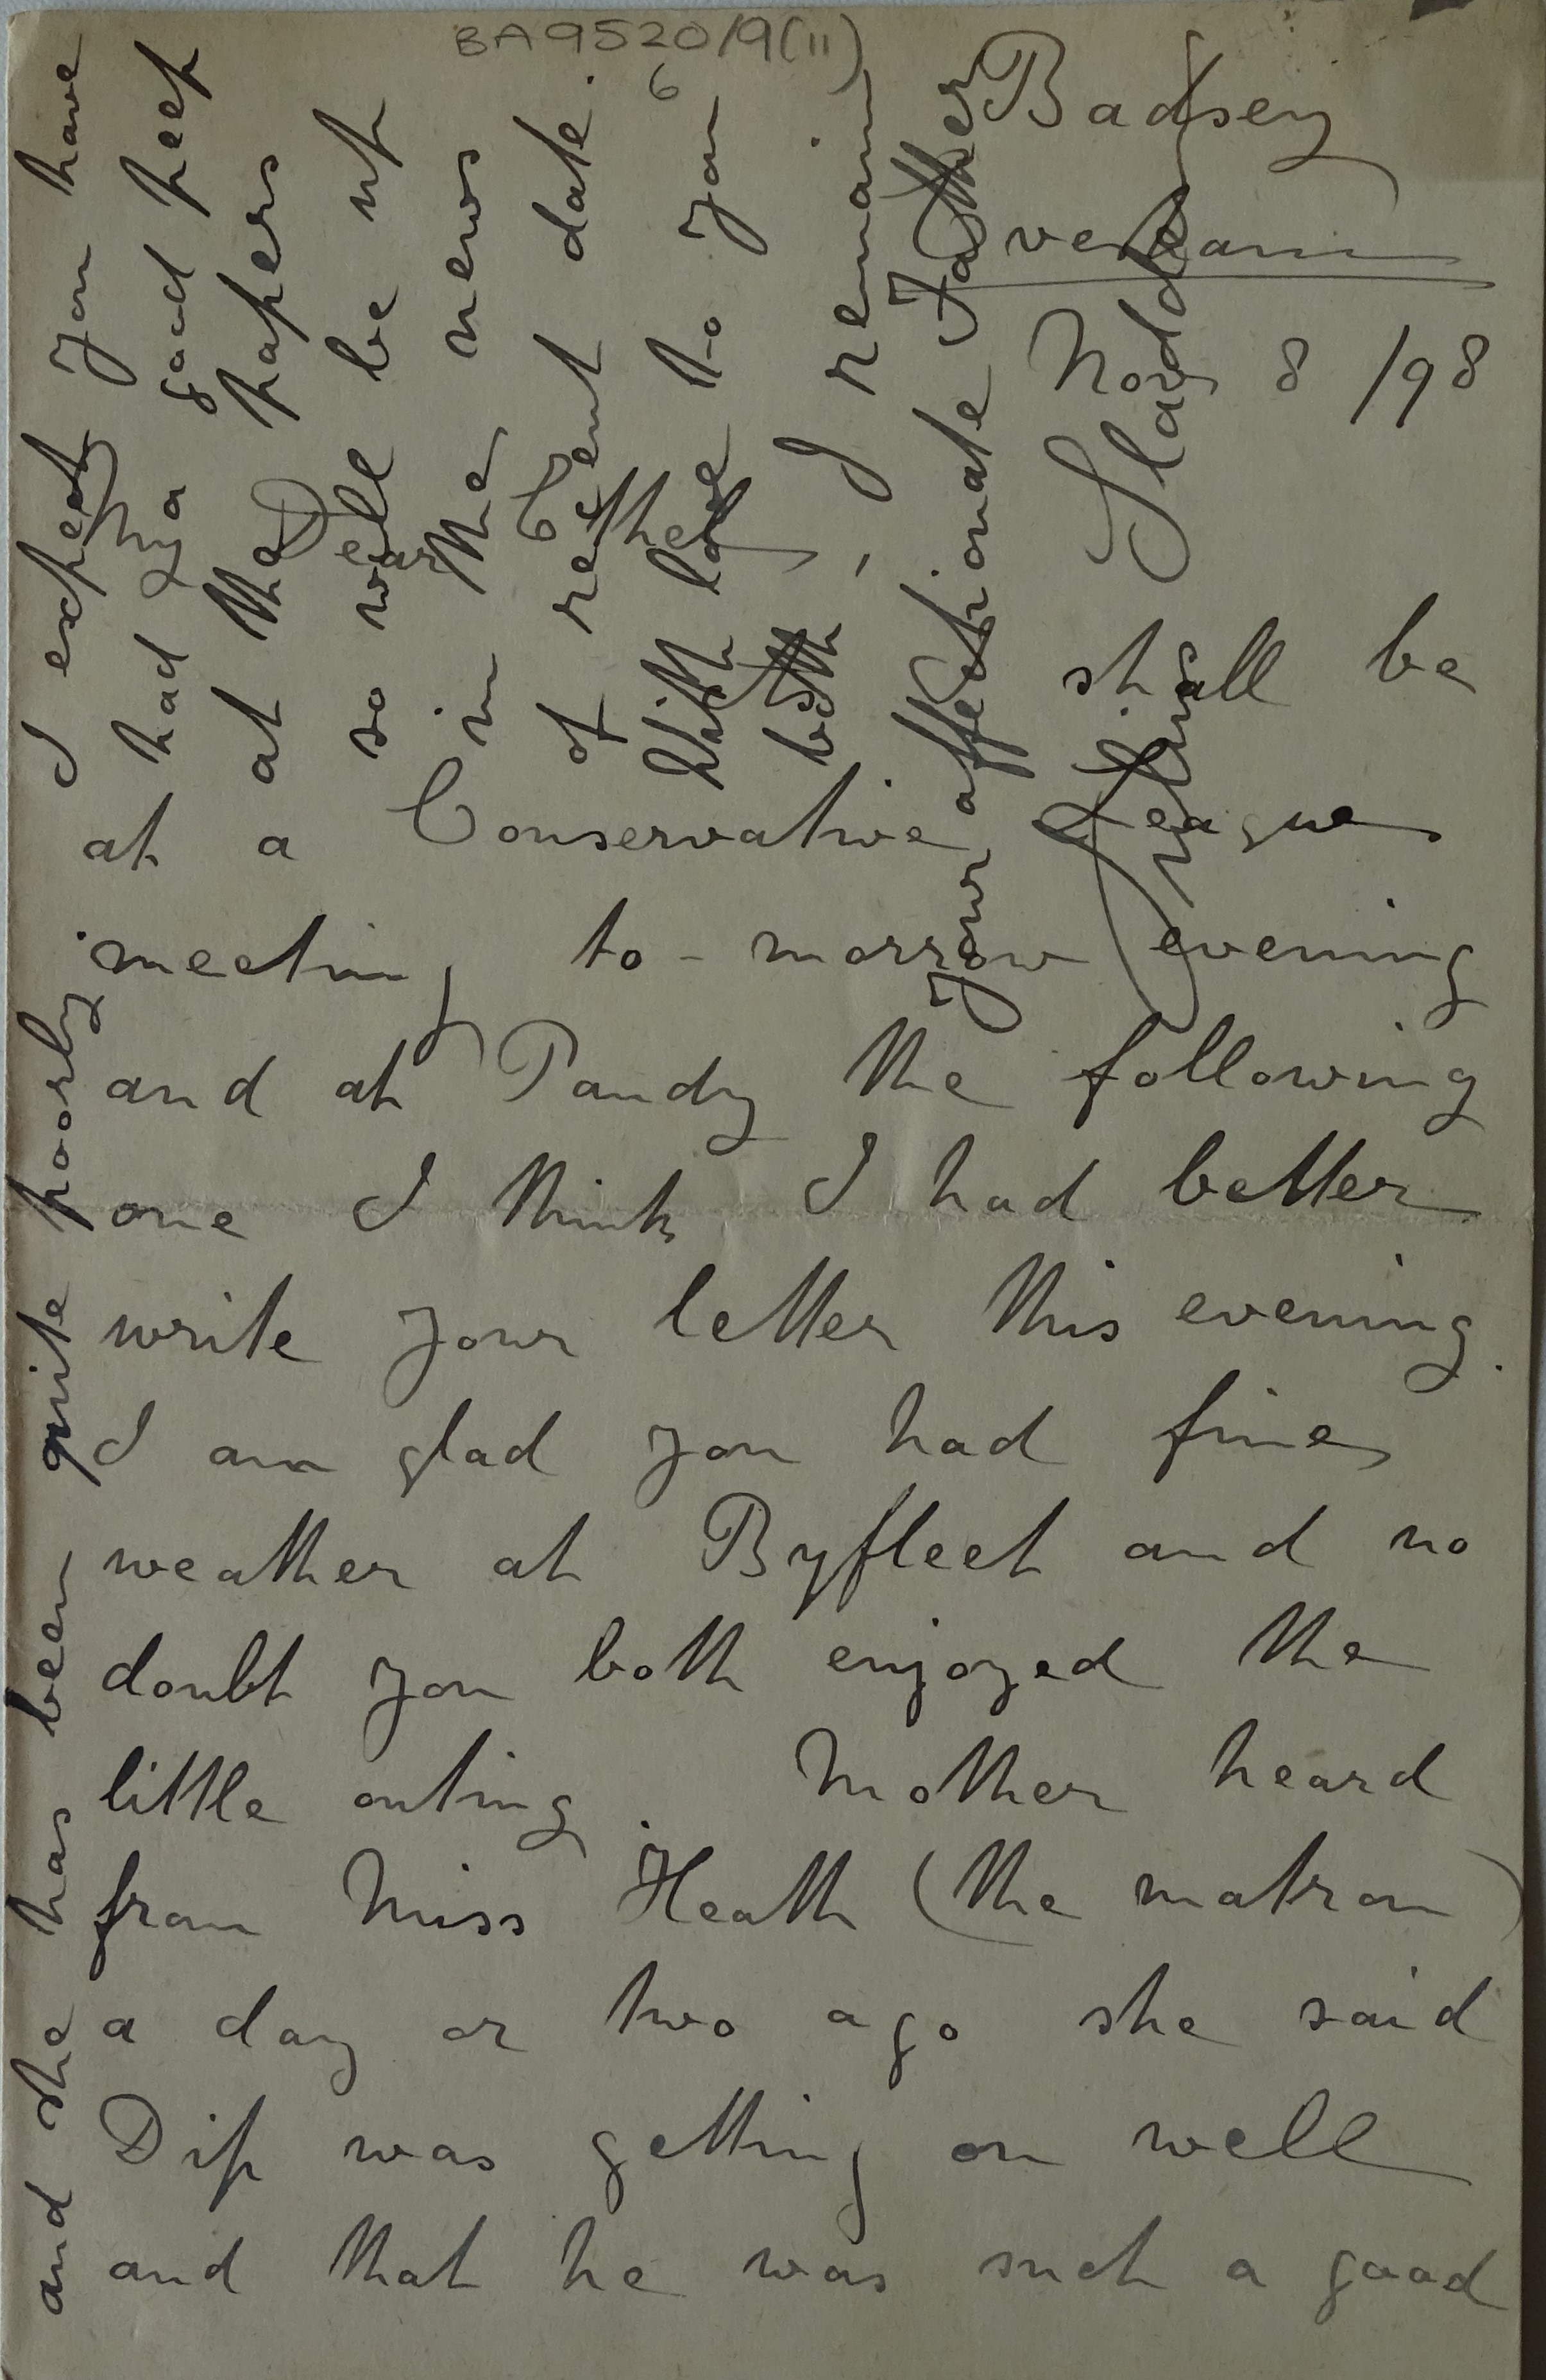 BA9520/9(11)
6
Badsey
Evesham
Nov 8 /98
My Dear Ethel,
As I shall be
at a Conservative League
meeting to-morrow evening
and at Pandy the following
one I think I had better
write your letter this evening.
I am glad you had fine
weather at Byfleet and no
doubt you both enjoyed the
little outing. Mother heard
from Miss Heath (the matron)
a day or two ago she said
Dip was getting on well
and that he was such a good
and she has been quite poorly
I expect you have
had a good peep
at the papers
so will be up
in the news
of recent date.
With love to you
both, I remain
your affectionate Father
Julius Sladden